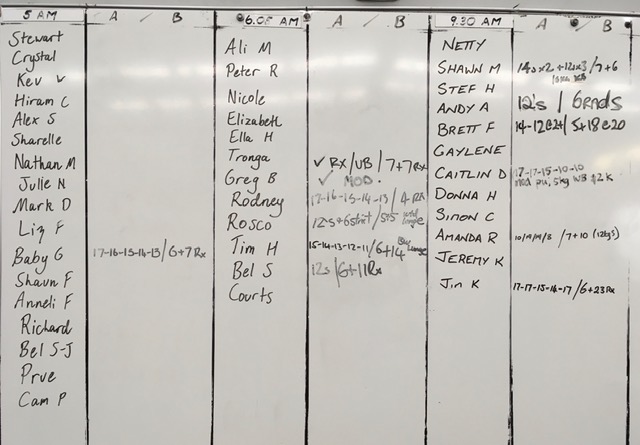 5 AM A / B
Stewart
Crystal
Kev v
Hiram C
Alex S
Sharelle
Nathan M
Julie N
Mark D
Liz F
Baby G 17-16-15-14-13 / 6+7 Rx
Shaun F
Anneli F
Richard
Bel S-J
Prue
Cam P
6.05 AM A / B
Ali M
Peter R
Nicole
Elizabeth
Ella H
Tronga ✓ RX/UB / 7+7 Rx
Greg B ✓ MOD.
Rodney 17-16-15-14-13 / 4 RX
Rosco 12's+6 / 5+5 Lunge
Tim H 15-14-13-12-11 / 6+14 Lunge
Bel S 12s / 6+11 Rx
Courts
9.30 AM A / B
NETTY
SHAWN M 14s x2 + 12s x3 / 7+6
STEF H
ANDY A 12's / 6 RNDS
BRETT F 14-12 / 5+18 @20
GAYLENE
CAITLIN D 17-17-15-10-10
Mod pu, 5kg WB
DONNA H
SIMON C
AMANDA R / 7+10 (12kgs)
JEREMY K
Jin K 17-17-15-16-17 / 6+23 Rx